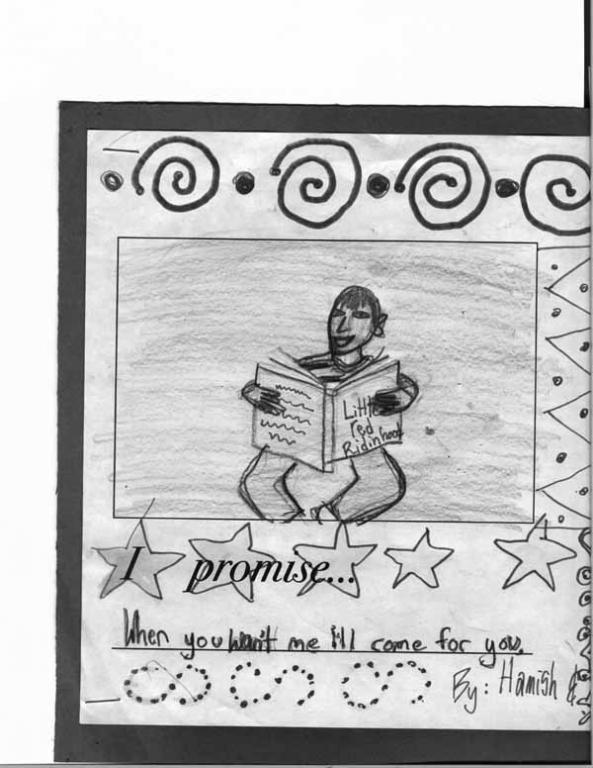 Little
red
Ridinhood
I promise...
When you want me I'll come for you.
By: Hamish